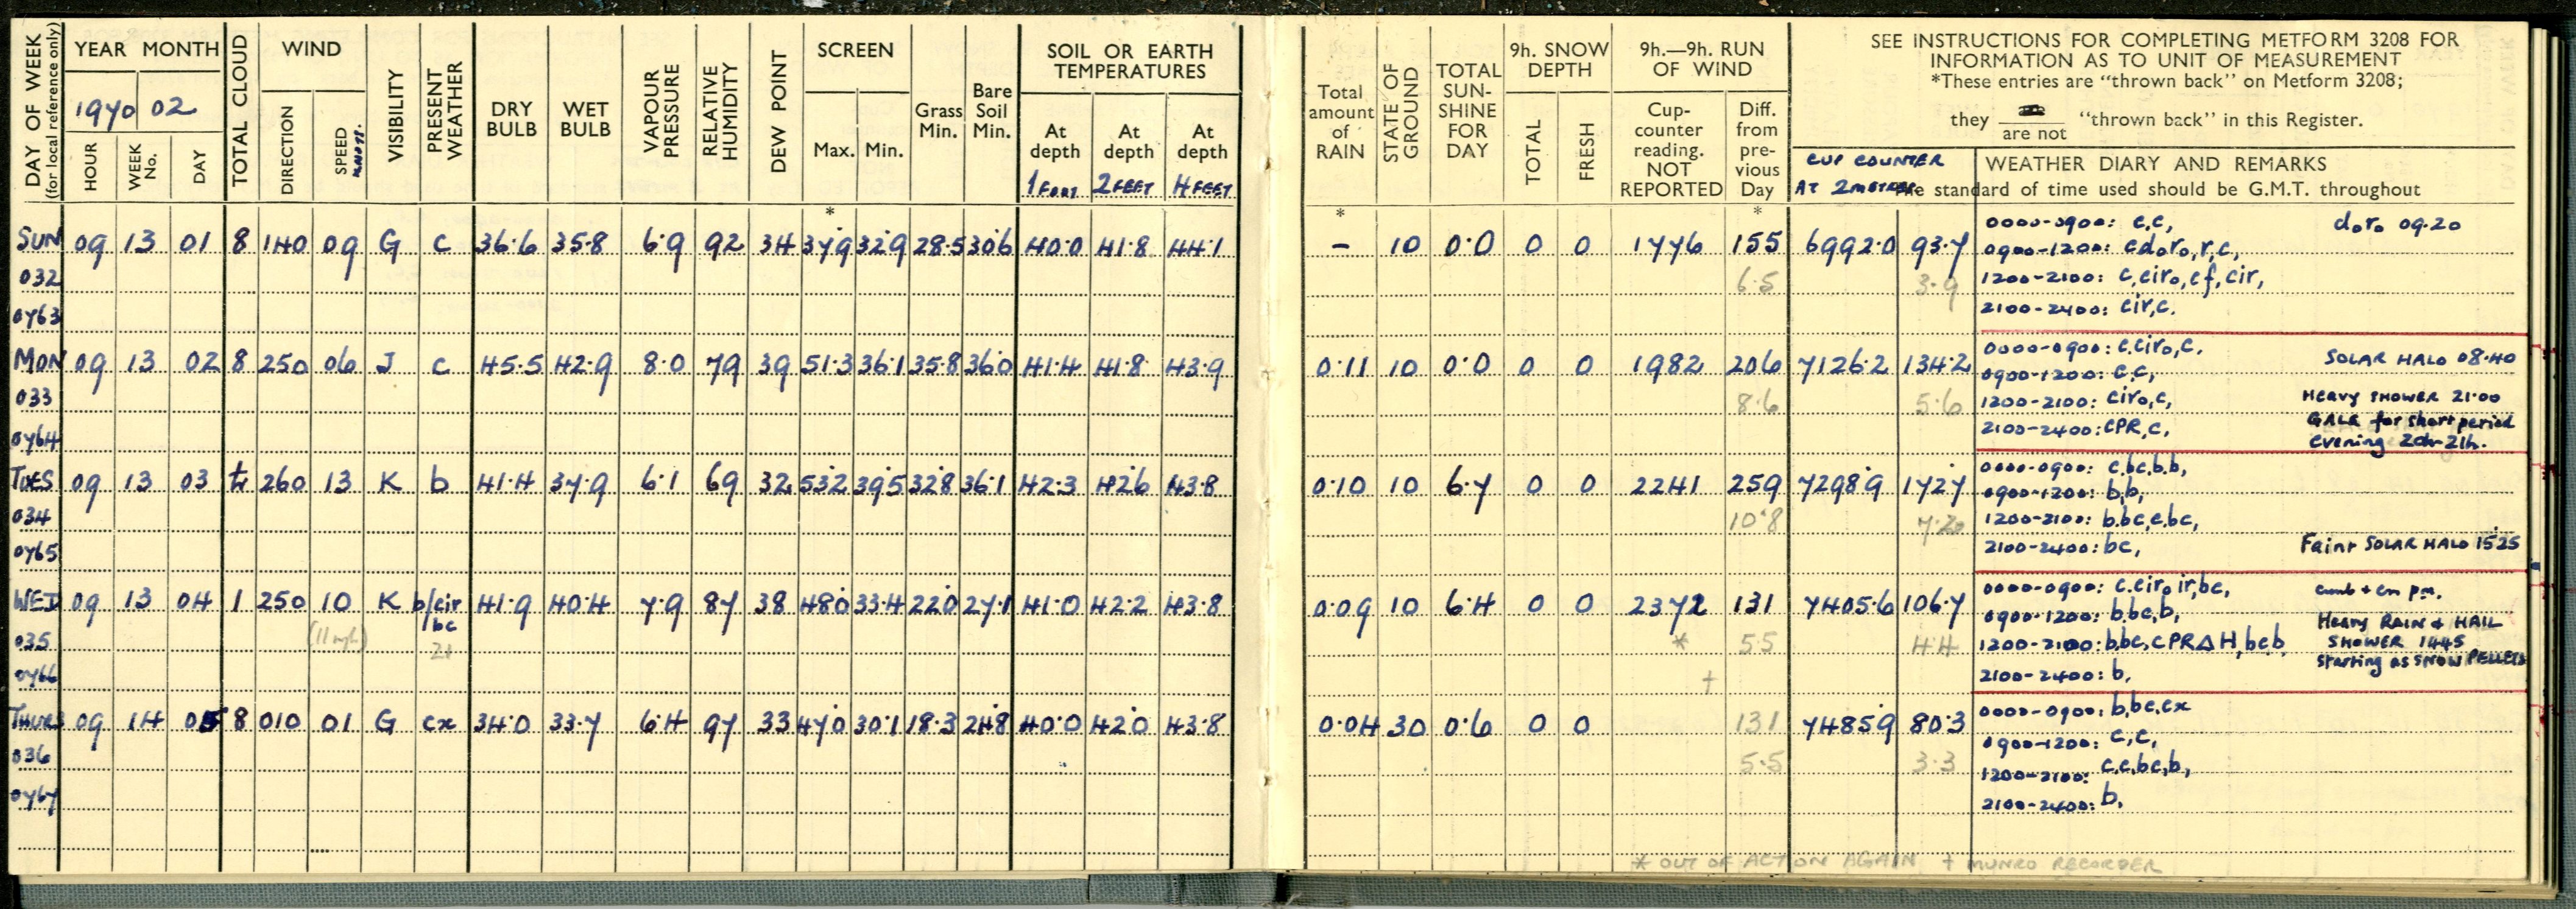 DAY OF WEEK
(for local reference only)
YEAR MONTH
1970 02
HOUR
WEEK No.
DAY
TOTAL CLOUD
WIND
DIRECTION
SPEED
KNOTS.
VISIBILITY
PRESENT WEATHER
DRY BULB
WET BULB
VAPOUR PRESSURE
RELATIVE HUMIDITY
DEW POINT
SCREEN
Max. Min.
Grass Min.
Bare Soil Min.
SOIL OR EARTH TEMPERATURES
At depth 1 FOOT
At depth 2 FEET
At depth 4 FEET
Total amount of RAIN
STATE OF GROUND
TOTAL SUN-SHINE FOR DAY
9h. SNOW DEPTH
TOTAL
FRESH
9h.—9h. RUN OF WIND
Cup-counter reading. NOT REPORTED
Diff. from pre-vious Day
SEE INSTRUCTIONS FOR COMPLETING METFORM 3208 FOR
INFORMATION AS TO UNIT OF MEASUREMENT
*These entries are "thrown back" on Metform 3208;
they are not "thrown back" in this Register.
CUP COUNTER
AT 2 METRES
WEATHER DIARY AND REMARKS
The standard of time used should be G.M.T. throughout
* * *
SUN 09 13 01 8 140 09 G c 36.6 35.8 6.9 92 34 37.9 32.9 28.5 30.6 40.0 41.8 44.1 – 10 0.0 0 0 1776 155 6992.0 93.7
032 6.5 3.9
0763
0000-0900: c,c, doro 09.20
0900-1200: cdoro,r,c,
1200-2100: c,ciro,cf,cir,
2100-2400: cir,c.
MON 09 13 02 8 250 06 J c 45.5 42.9 8.0 79 39 51.3 36.1 35.8 36.0 41.4 41.8 43.9 0.11 10 0.0 0 0 1982 206 7126.2 134.2
033 8.6 5.6
0764
0000-0900: c,ciro,c. SOLAR HALO 08.40
0900-1200: c,c,
1200-2100: ciro,c, HEAVY SHOWER 21.00
2100-2400: cPR,c, GALE for short period
evening 20h-21h.
TUES 09 13 03 260 13 K b 41.4 37.9 6.1 69 32 53.2 39.5 32.8 36.1 42.3 42.6 43.8 0.10 10 6.7 0 0 2241 259 7298.9 172.7
034 10.8 7.20
0765
0000-0900: c,bc,b.b,
0900-1200: b,b,
1200-2100: b.bc,c,bc,
2100-2400: bc, Faint SOLAR HALO 1525
WED 09 13 04 1 250 10 K b/cir 41.9 40.4 7.9 87 38 48.0 33.4 22.0 27.1 41.0 42.2 43.8 0.09 10 6.4 0 0 2372 131 7405.6 106.7
bc
035 (11 mph) 21 * 5.5 4.4
0766 †
0000-0900: c.ciro,ir,bc,
0900-1200: b.bc,b, HEAVY RAIN & HAIL
1200-2100: b,bc,cPR△H,bc,b SHOWER 1445
starting as SNOW PELLETS
2100-2400: b,
THURS 09 14 05 8 010 01 G cx 34.0 33.7 6.4 97 33 47.0 30.1 18.3 24.8 40.0 42.0 43.8 0.04 30 0.6 0 0 131 7485.9 80.3
036 5.5 3.3
0767
0000-0900: b,bc,cx
0900-1200: c,c,
1200-2100: c,c,bc,b,
2100-2400: b,
* OUT OF ACTION AGAIN † MUNRO RECORDER